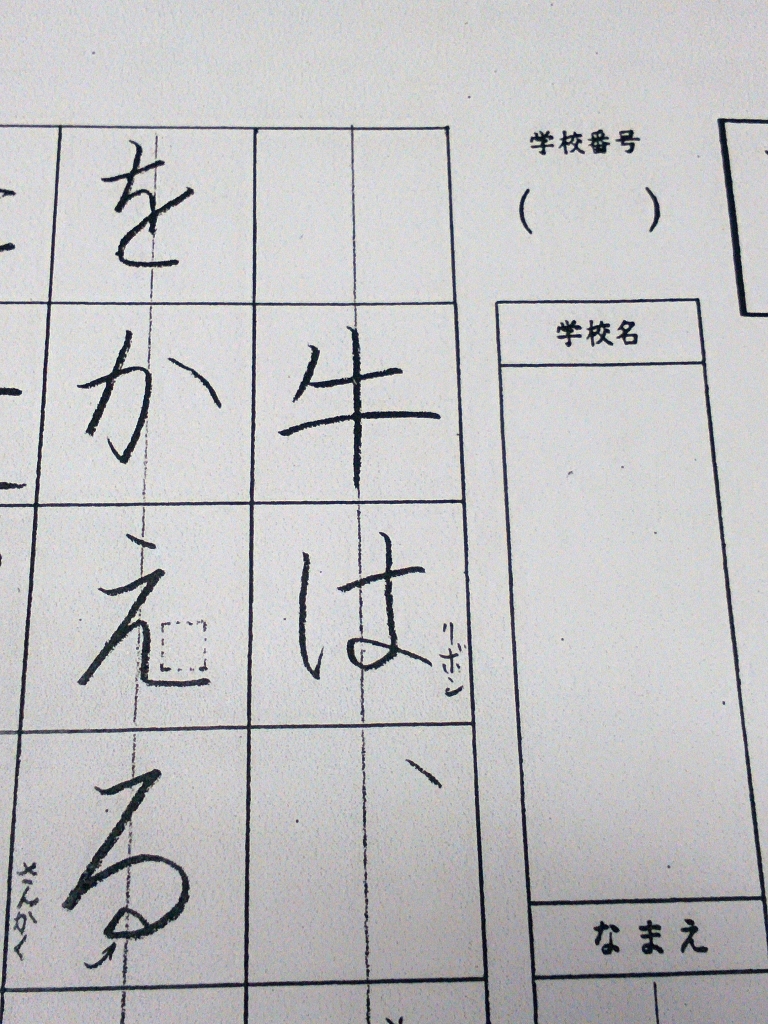 学校番号
(　　)
学校名
なまえ
牛は、
リボン
をかえる
さんかく